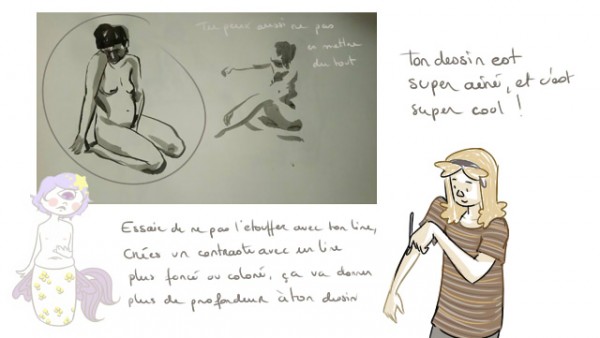 Tu peux aussi ne pas
en mettre
du tout
Ton dessin est
super aéré, et c'est
super cool !
Essaie de ne pas l'étouffer avec ton line,
Crées un contraste avec un line
plus foncé ou coloré, ça va donner
plus de profondeur à ton dessin